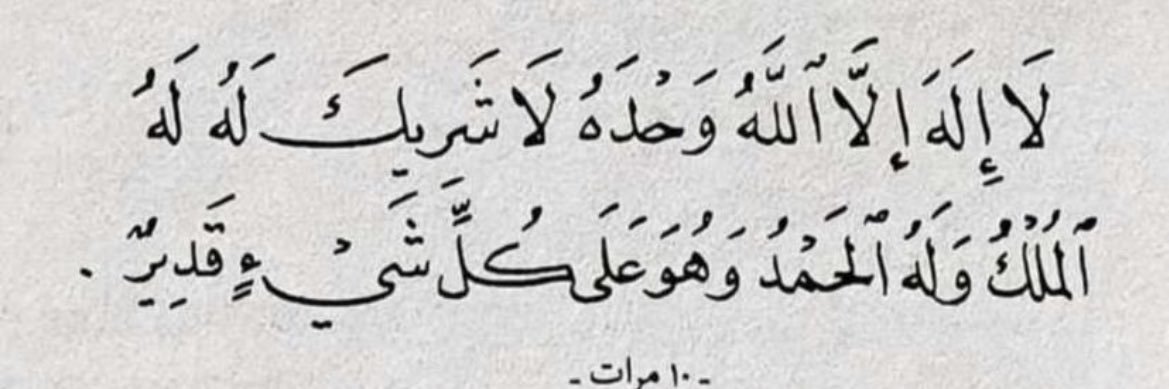 لَا إِلَهَ إِلَّا ٱللَّهُ وَحْدَهُ لَا شَرِيكَ لَهُ لَهُ
ٱلْمُلْكُ وَلَهُ ٱلْحَمْدُ وَهُوَ عَلَى كُلِّ شَيْءٍ قَدِيرٌ .
- ١٠ مرات -